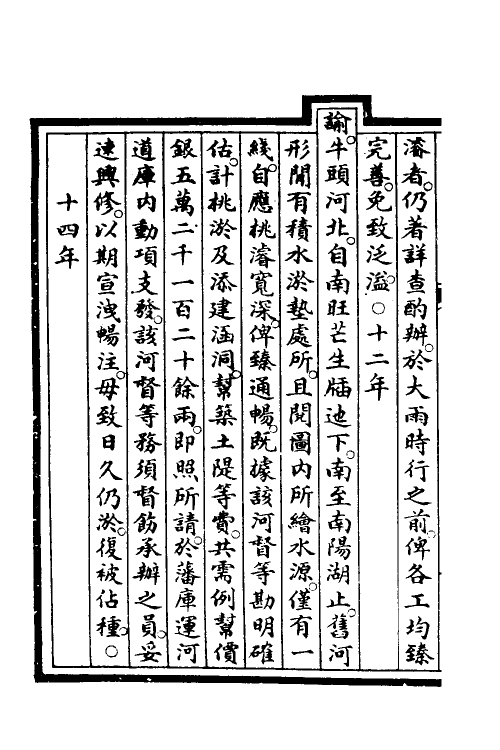 濬者。仍著詳查酌辦。於大雨時行之前。俾各工均臻
完善。免致泛溢。○十二年
諭。牛頭河北。自南旺芒生牐迆下。南至南陽湖止。舊河
形閒有積水淤墊處所。且閱圖內所繪水源。僅有一
綫。自應挑濬寬深。俾臻通暢。既據該河督等勘明確
估。計挑淤及添建涵洞。幫築土隄等費。共需例幫價
銀五萬二千一百二十餘兩。即照所請。於藩庫運河
道庫內動項支發。該河督等務須督飭承辦之員。妥
速興修。以期宣洩暢注。毋致日久仍淤。復被佔種。○
十四年